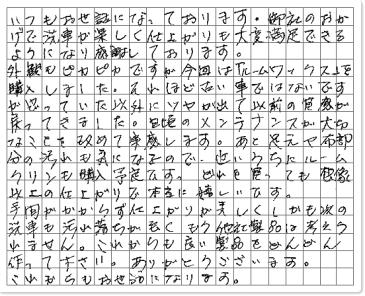 いつもお世話になっております。御社のおか
げで洗車が楽しく仕上がりも大変満足できる
ようになり感謝しております。
外観もピカピカですが今回はルームワックス上を
購入しました。それほど古い車ではないです
が思っていた以外にツヤが出て以前の質感が
戻ってきました。日頃のメンテナンスが大切
なことを改めて実感します。あと足元や布部
分の汚れも気になるので、近いうちにルーム
クリンも購入予定です。どれを買っても想像
以上の仕上がりで本当に嬉しいです。
手間がかからず仕上がりが美しくしかも次の
洗車も汚れ落ちが良くもう他社製品は考えら
れません。これからも良い製品をどんどん
作って下さい。ありがとうございます。
これからもお世話になります。